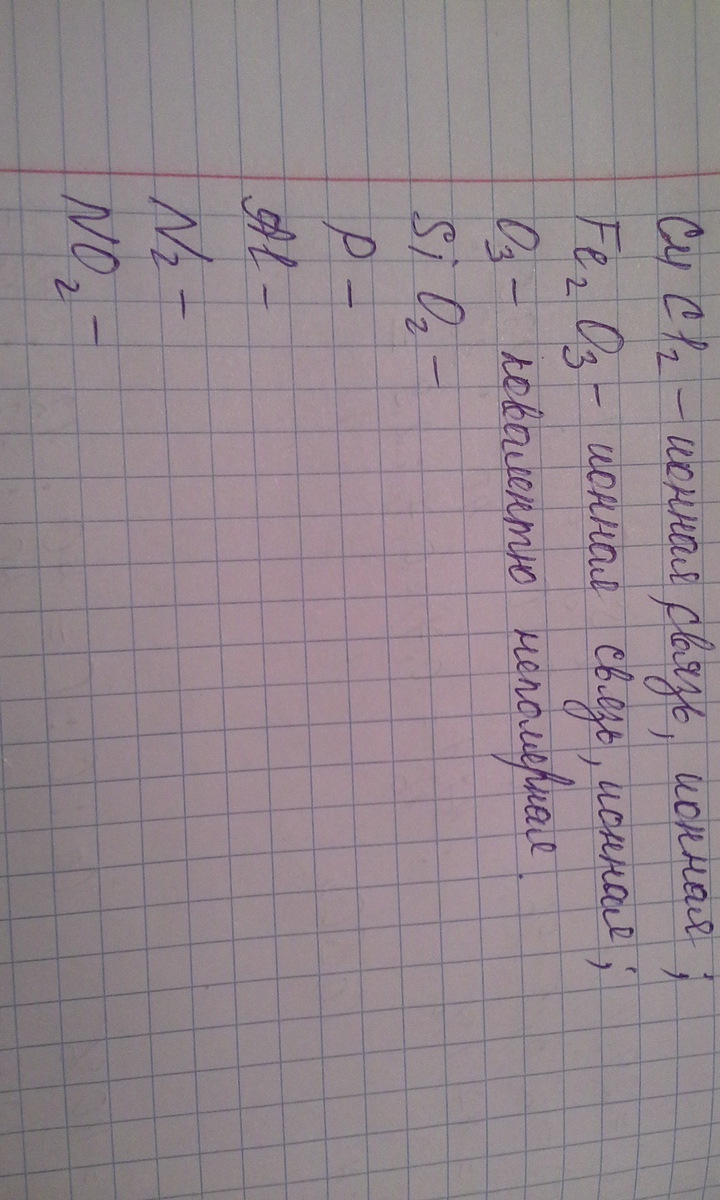 CuCl₂ - ионная связь, ионная;
Fe₂O₃ - ионная связь, ионная;
O₃ - ковалентно неполярная.
SiO₂ -
P -
Al -
N₂ -
NO₂ -